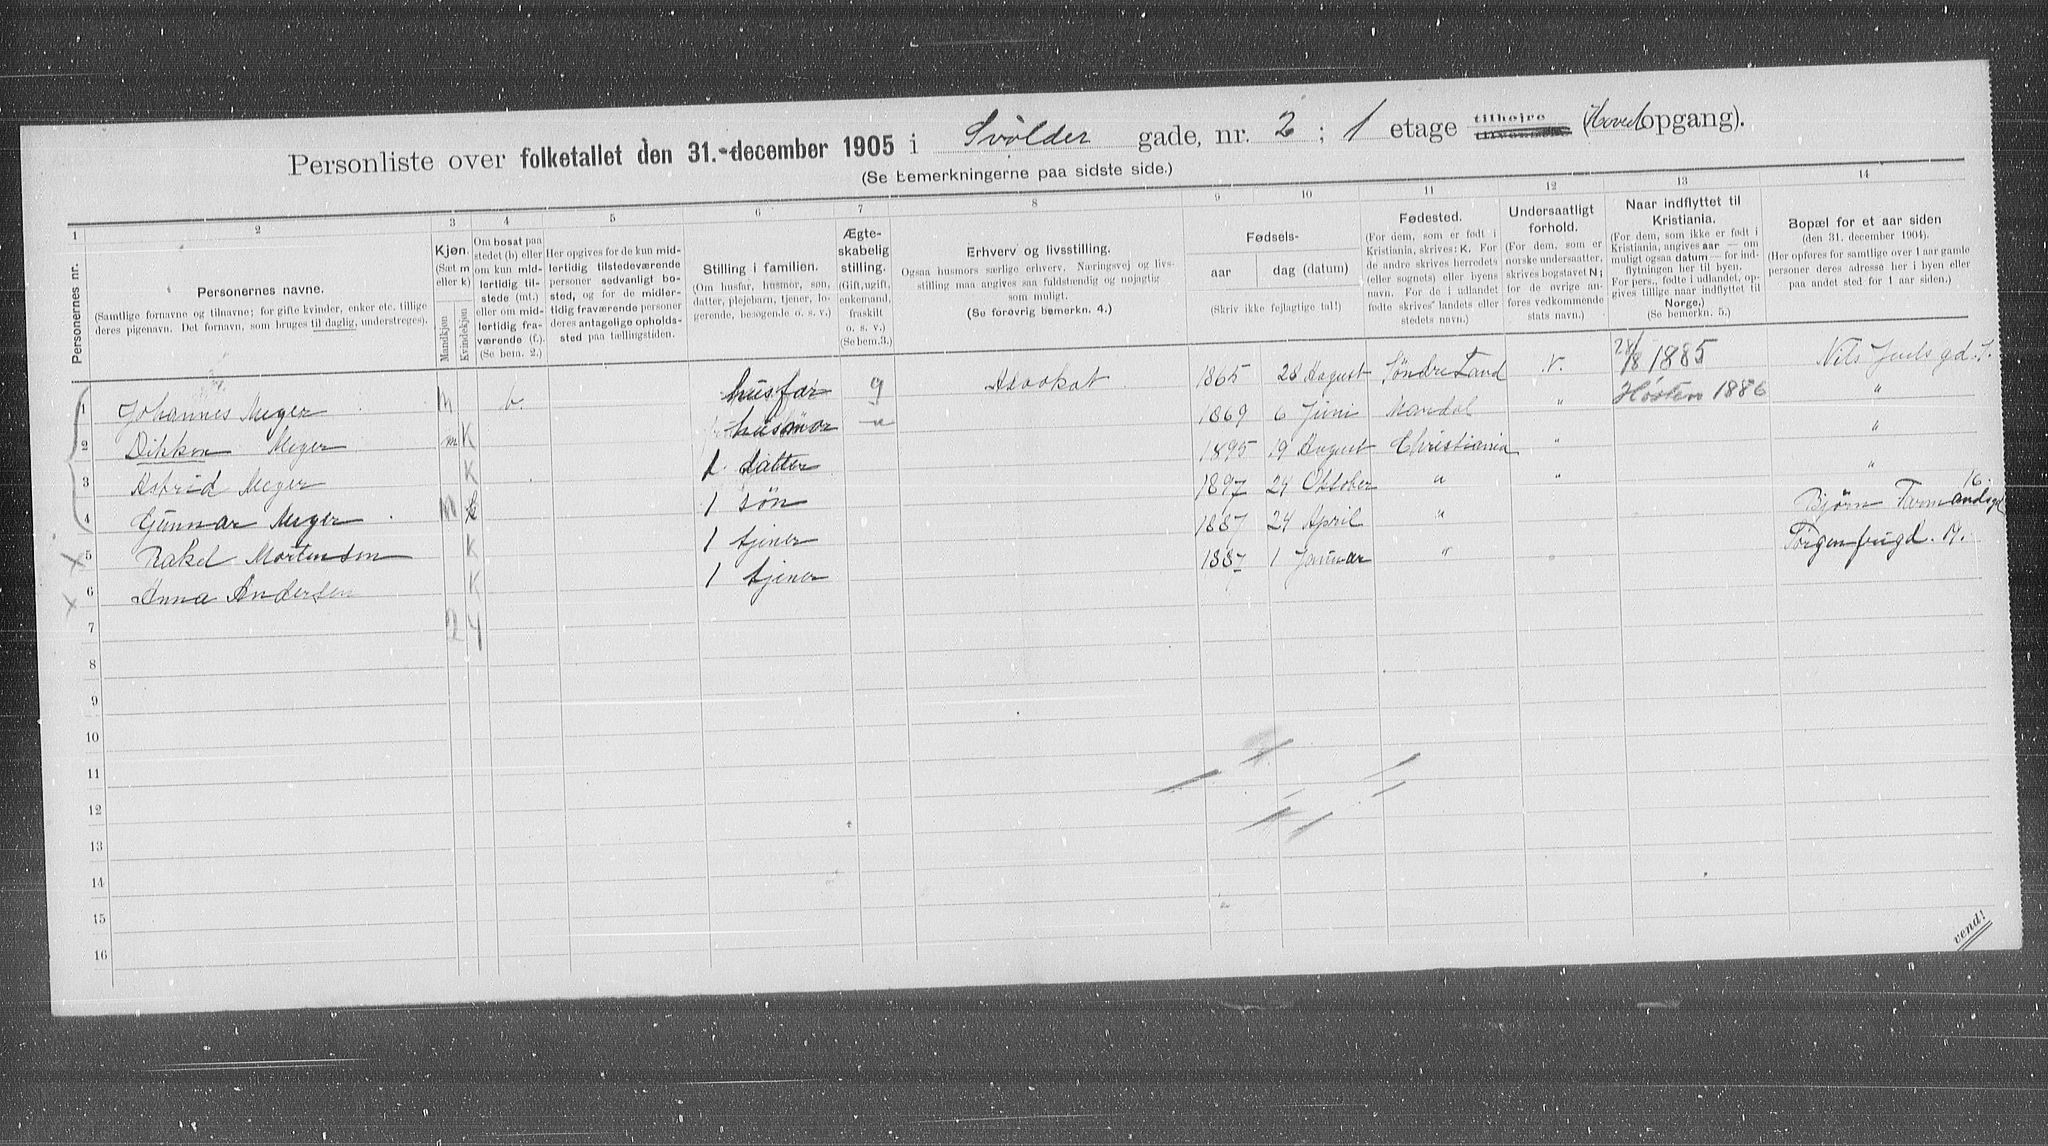 Personliste over folketallet den 31. december 1905 i Svolder gade, nr. 2 ; 1 etage tilhøjre (Hoved opgang).
(Se bemerkningerne paa sidste side.)
1 2 3 4 5 6 7 8 9 10 11 12 13 14
Personernes nr.
Personernes navne.
(Samtlige fornavne og tilnavne; for gifte kvinder, enker etc. tillige deres pigenavn. Det fornavn, som bruges til daglig, understreges).
Kjøn.
(Sæt m eller k)
Mandkjøn
Kvindekjøn
Om bosat paa stedet (b) eller om kun midlertidig tilstede (mt.) eller om midlertidig fraværende (f.). (Se bem. 2.)
Her opgives for de kun midlertidig tilstedeværende personer sedvanligt bosted, og for de midlertidig fraværende personer deres antagelige opholdssted paa tællingstiden.
Stilling i familien.
(Om husfar, husmor, søn, datter, plejebarn, tjener, logerende, besøgende o. s. v.)
Ægteskabelig stilling.
(Gift, ugift, enkemand, fraskilt o. s. v.)
(Se bem. 3.)
Erhverv og livsstilling.
Ogsaa husmors særlige erhverv. Næringsvej og livsstilling maa angives saa fuldstændig og nøjagtig som muligt.
(Se forøvrig bemerkn. 4.)
Fødsels-
aar
dag (datum)
(Skriv ikke fejlagtige tal!)
Fødested.
(For dem, som er født i Kristiania, skrives: K. For de andre skrives herredets (eller sognets) eller byens navn. For de i udlandet fødte skrives landets eller stedets navn.)
Undersaatligt forhold.
(For dem, som er norske undersaatter, skrives bogstavet N; for de øvrige anføres vedkommende stats navn.)
Naar indflyttet til Kristiania.
(For dem, som ikke er født i Kristiania, angives aar — om muligt ogsaa datum — for indflytningen her til byen. For pers., fødte i udlandet, opgives tillige naar indflyttet til Norge.)
(Se bemerkn. 5.)
Bopæl for et aar siden
(den 31. december 1904).
(Her opføres for samtlige over 1 aar gamle personer deres adresse her i byen eller paa andet sted for 1 aar siden.)
1 Johannes Meyer m b. husfar g Advokat 1865 28 August Søndre Land N. 28/8 1885 Nils Juels gd.
2 Dikken Meyer K husmor 1869 6 Juni Mandal " Høsten 1886 "
3 Astrid Meyer K datter 1895 19 August Christiania " "
4 Gunnar Meyer m 1 søn 1897 24 Oktober " " "
5 Rakel Mortensen K 1 tjener 1887 24 April " Bjørn 16
6 Anna Andersen K 1 tjener 1887 1 Januar "
7 2 4
8
9
10
11
12
13
14
15
16
vend!